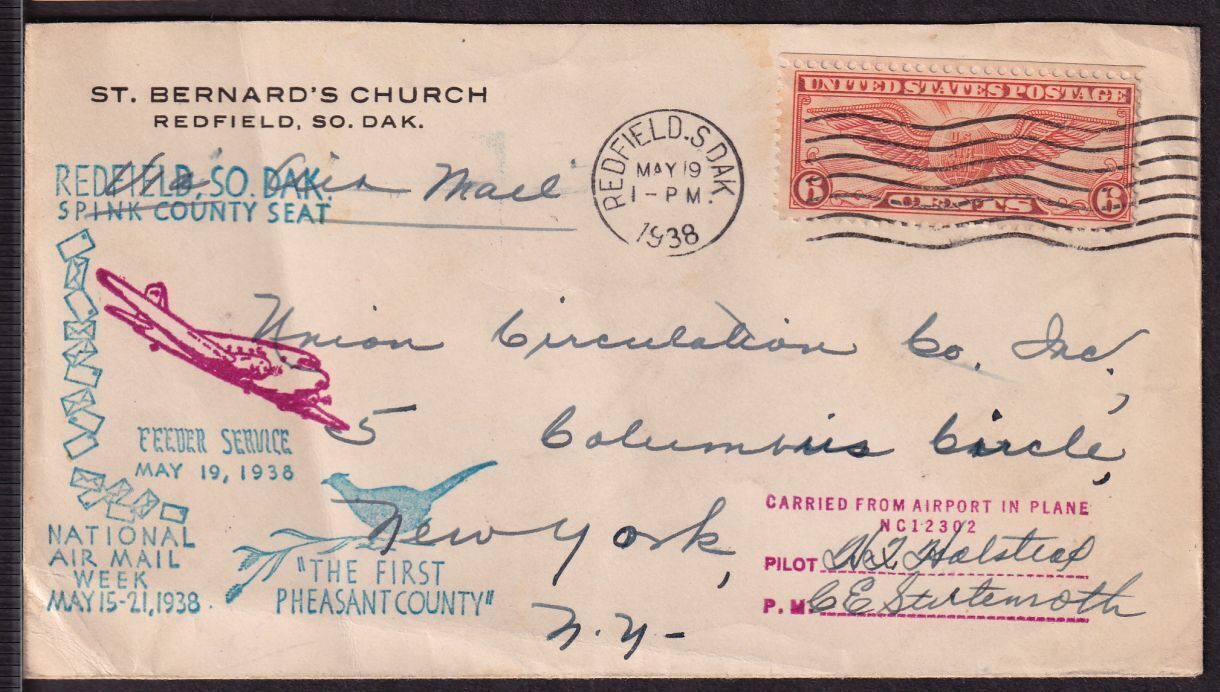 ST. BERNARD'S CHURCH
REDFIELD, SO. DAK.
REDFIELD, SO. DAK.
SPINK COUNTY SEAT
Via Air Mail
REDFIELD.S.DAK.
MAY 19
1-PM.
1938
UNITED STATES POSTAGE
U.S.
6 CENTS 6
Union Circulation Co. Inc.,
5 Columbus Circle,
New York,
N.Y-
FEEDER SERVICE
MAY 19, 1938
NATIONAL
AIR MAIL
WEEK
MAY 15-21, 1938.
"THE FIRST
PHEASANT COUNTY"
CARRIED FROM AIRPORT IN PLANE
NC12302
PILOT Halstead
P. M. C E